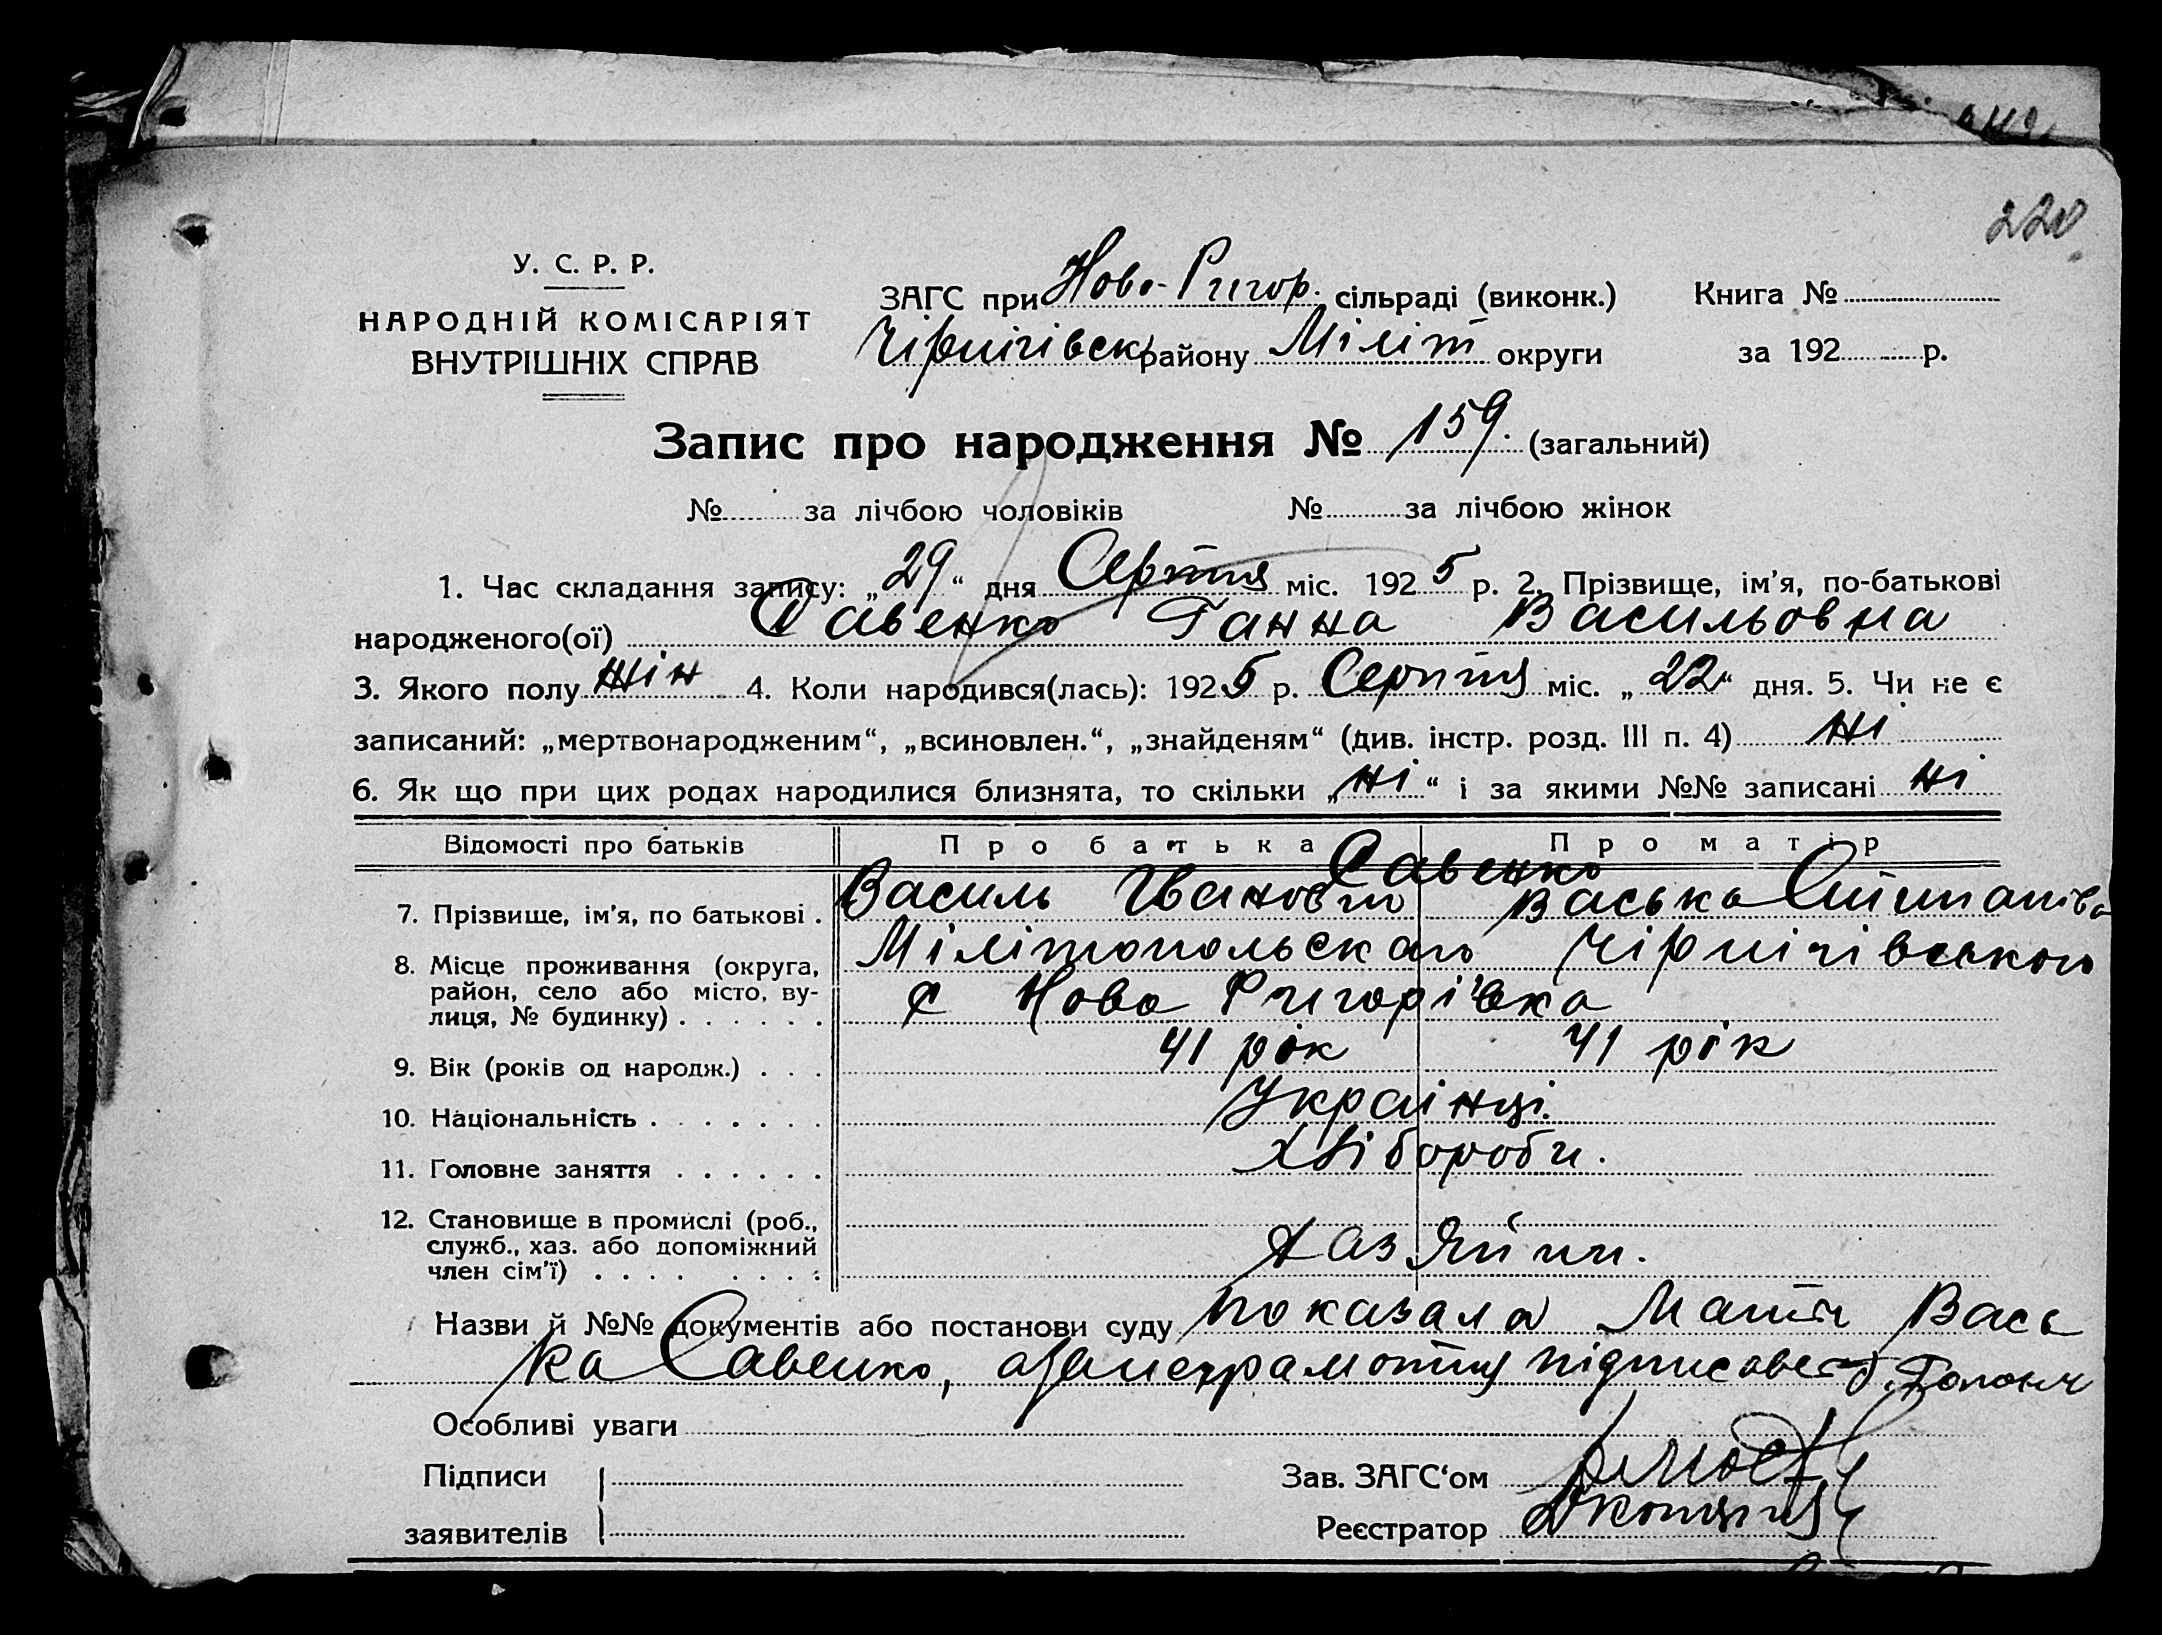 220
У. С. Р. Р.
НАРОДНІЙ КОМІСАРІЯТ
ВНУТРІШНІХ СПРАВ
ЗАГС при Ново-Григор. сільраді (виконк.) Книга №
Чірнігівськ району Міліт округи за 192 р.
Запис про народження № 159. (загальний)
№ за лічбою чоловіків № за лічбою жінок
1. Час складання запису: „29“ дня Серпня міс. 1925 р. 2. Прізвище, ім'я, по-батькові
народженого(ої) Савенко Ганна Васильовна
3. Якого полу жін 4. Коли народився(лась): 1925 р. Серпня міс. „22“ дня. 5. Чи не є
записаний: „мертвонародженим“, „всиновлен.“, „знайденям“ (див. інстр. розд. III п. 4) ні
6. Як що при цих родах народилися близнята, то скільки „ні“ і за якими №№ записані ні
Відомості про батьків Про батька Про матір
Савенко
7. Прізвище, ім'я, по батькові . Василь Іванович Васька
8. Місце проживання (округа, район, село або місто, вулиця, № будинку) . . . . . . Мілітопольскаго Чірнігівського
с Ново Григорівка
9. Вік (років од народж.) . . . 41 рік 41 рік
10. Національність . . . . . . . Українці.
11. Головне заняття . . . . . . Хліборобы.
12. Становище в промислі (роб., служб., хаз. або допоміжний член сім'ї) . . . . . . . . Хазяйни.
Назви й №№ документів або постанови суду показала Мати Вась
ка Савенко,
Особливі уваги
Підписи
заявителів
Зав. ЗАГС‘ом
Реєстратор